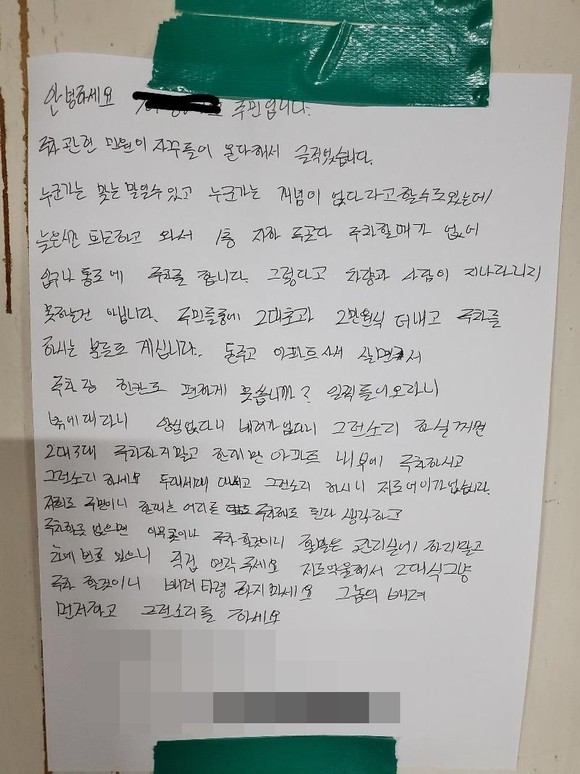 안녕하세요 주민입니다.
주차 관련 민원이 자꾸들어 온다해서 글적었습니다.
누군가는 맞는 말일수있고 누군가는 개념이 없다라고 할수도있는데
늦은시간 퇴근하고 와서 1층 지하 두곳다 주차할때가 없어
입구나 통로에 주차를 합니다. 그렇다고 차량과 사람이 지나다니지
못하는건 아닙니다. 주민들중에 2대초과 2만원식 더내고 주차를
하시는 분들도 계십니다. 돈주고 아파트사서 살면서
주차장 한칸도 편하게 못씁니까? 일찍들어오라니
밖에대라니 양심없다니 배려가없다니 그런소리 하실꺼면
2대3대 주차하지말고 한대만 아파트 내부에 주차하시고
그런소리 하세요 두대세대 대시고 그런소리 하시니 저로 어이가없습니다.
저희도 주민이니 한대는 어디든 주차해도 된다 생각하고
주차할곳 없으면 아무곳이나 주차 할것이니 할말은 관리실에 하지말고
차에 번호 있으니 직접 연락주세요 저도 억울해서 2대식그냥
주차 할것이니 배려타령 하지마세요 그놈의 배려
먼저하고 그런소리를 하세요